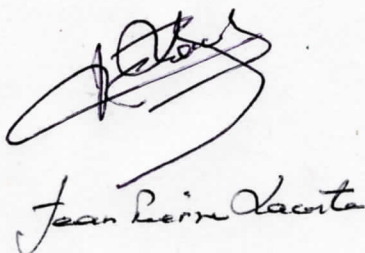 Jean Pierre Lacoste